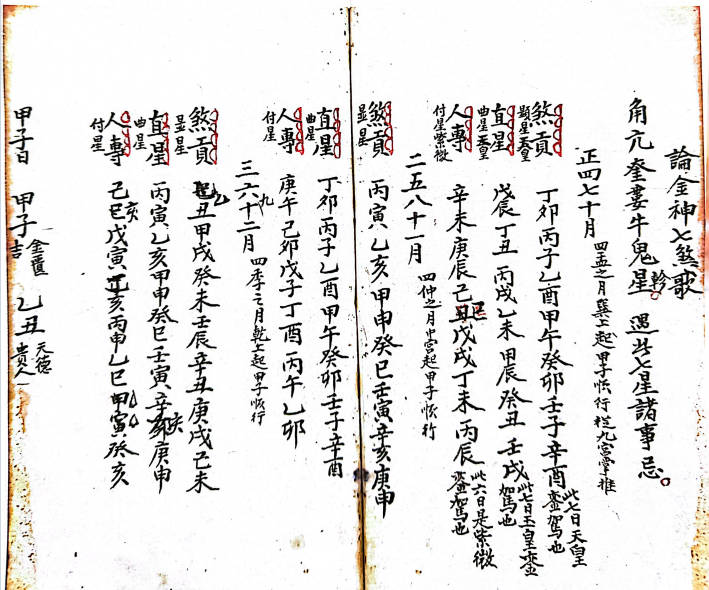 論金神七煞歌
角亢奎婁牛鬼星軫遇此七星諸事忌
正四七十月 四孟之月巽上起甲子行從九宮掌推
煞貢 顯星皇 丁卯丙子乙酉甲午癸卯壬子辛酉 此七日天皇鑾駕也
直星 曲星皇 戊辰丁丑丙戌乙未甲辰癸丑壬戌 此七日玉皇鑾駕也
人專 付星紫微 辛未庚辰己丑戊戌丁未丙辰 此六日是紫微鑾駕也
二五八十一月 四仲之月中宮起甲子行
煞貢 显星 丙寅乙亥甲申癸巳壬寅辛亥庚申
直星 曲星 丁卯丙子乙酉甲午癸卯壬子辛酉
人專 付星 庚午己卯戊子丁酉丙午乙卯
三六九十二月 四季之月乾上起甲子行
煞貢 显星 乙丑甲戌癸未壬辰辛丑庚戌己未
直星 曲星 丙寅乙亥甲申癸巳壬寅辛亥庚申
人專 付星 己巳戊寅丁亥丙申乙巳甲寅癸亥
甲子日 甲子 金匱 吉 乙丑 天德 貴人